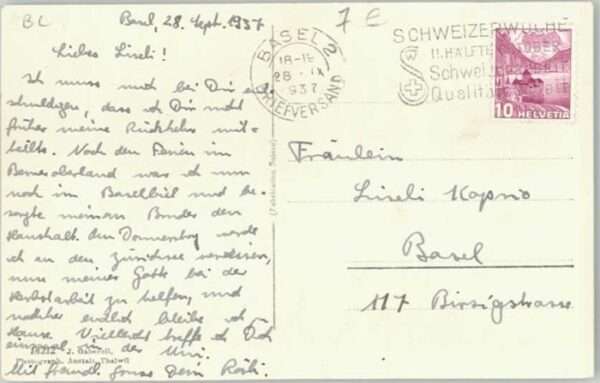 BL
7 €
Basel, 28. Sept. 1937
Liebes Liseli!
Ich muss mich bei Dir ent-
schuldigen, dass ich Dir nicht
früher meine Rückkehr mit-
teilte. Nach den Ferien im
Berneroberland war ich nun
noch im Baselbiet und be-
sorgte meinem Bruder den
Haushalt. Am Donnerstag werde
ich an den Zürichsee verreisen,
um meiner Gotte bei der
Herbstarbeit zu helfen, und
nachher endlich bleibe ich
Hause. Vielleicht treffe ich Dich
einmal in der Uni.
Mit freundl. Gruss Dein Rösli
18212 J. Gaberell,
Photograph. Anstalt, Thalwil
BASEL 2
28. IX
1937
BRIEFVERSAND
SCHWEIZERWOCHE
II. HÄLFTE OKTOBER
Schweizer
Qualitäts
10 HELVETIA
Fräulein
Liseli
Basel
117 Birsigstrasse